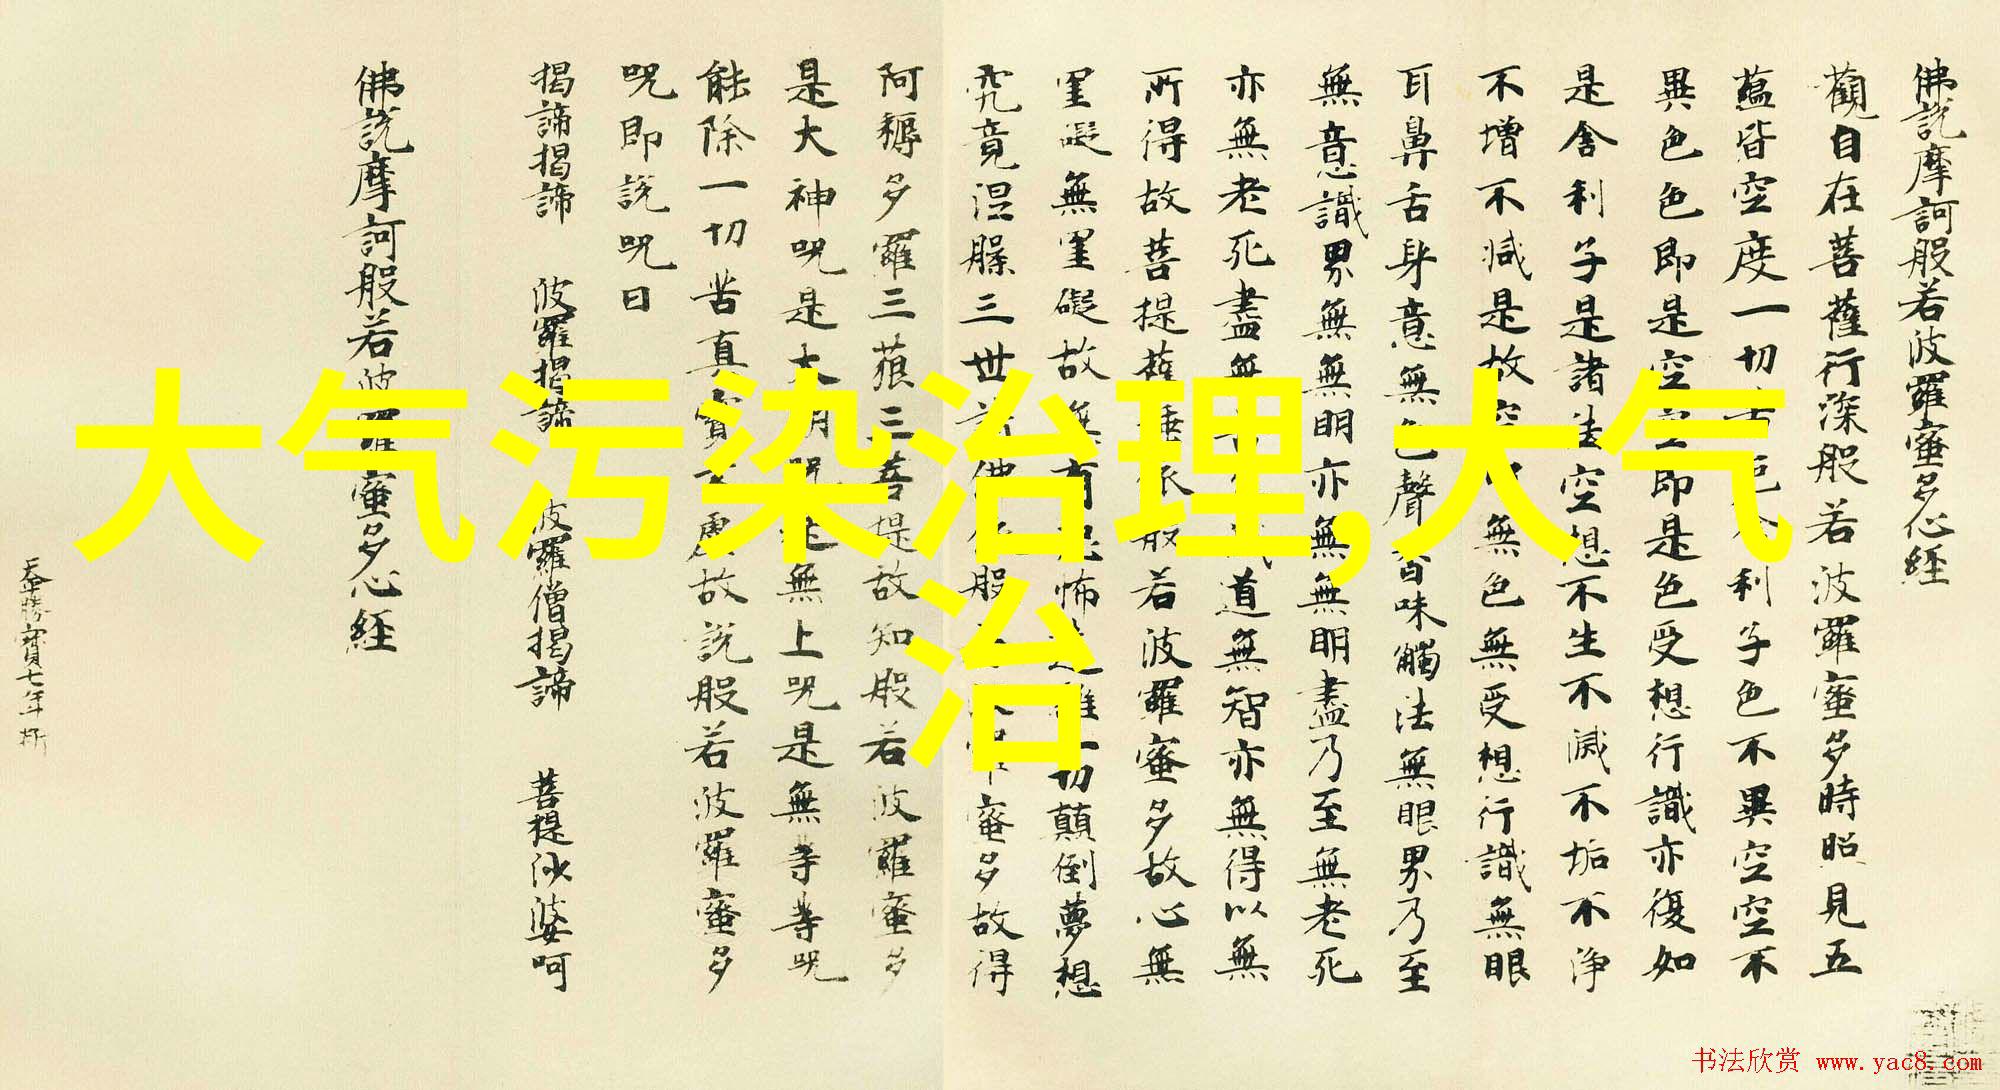 大气污染治理,大气
治
佛說摩訶般若波羅蜜多心經
觀自在菩薩行深般若波羅蜜多時照見五
蘊皆空度一切厄利子色不異空空不
異色色即是空空即是色受想行識亦復如
是舍利子是諸法空想不生不滅不垢不淨
不增不減是故空無色無受想行識無眼
耳鼻舌身意無色聲香味觸法無眼界乃至
無意識界無無明亦無無明盡乃至無老死
亦無老死盡無道無智亦無得以無
所得故菩提薩埵依般若波羅蜜多故心無
罣礙無罣礙故無有恐怖離一切顛倒夢想
究竟涅槃三世諸佛依般蜜多故得
阿耨多羅三藐三菩提故知般若波羅蜜多
是大神咒是大明咒是無上咒是無等等咒
能除一切苦真實不虛故說般若波羅蜜多
咒即說咒曰
揭諦揭諦 波羅揭諦 波羅僧揭諦 菩提沙婆呵
佛說摩訶般若波羅蜜多心經
寶七年
书法欣赏 www.yac8.com